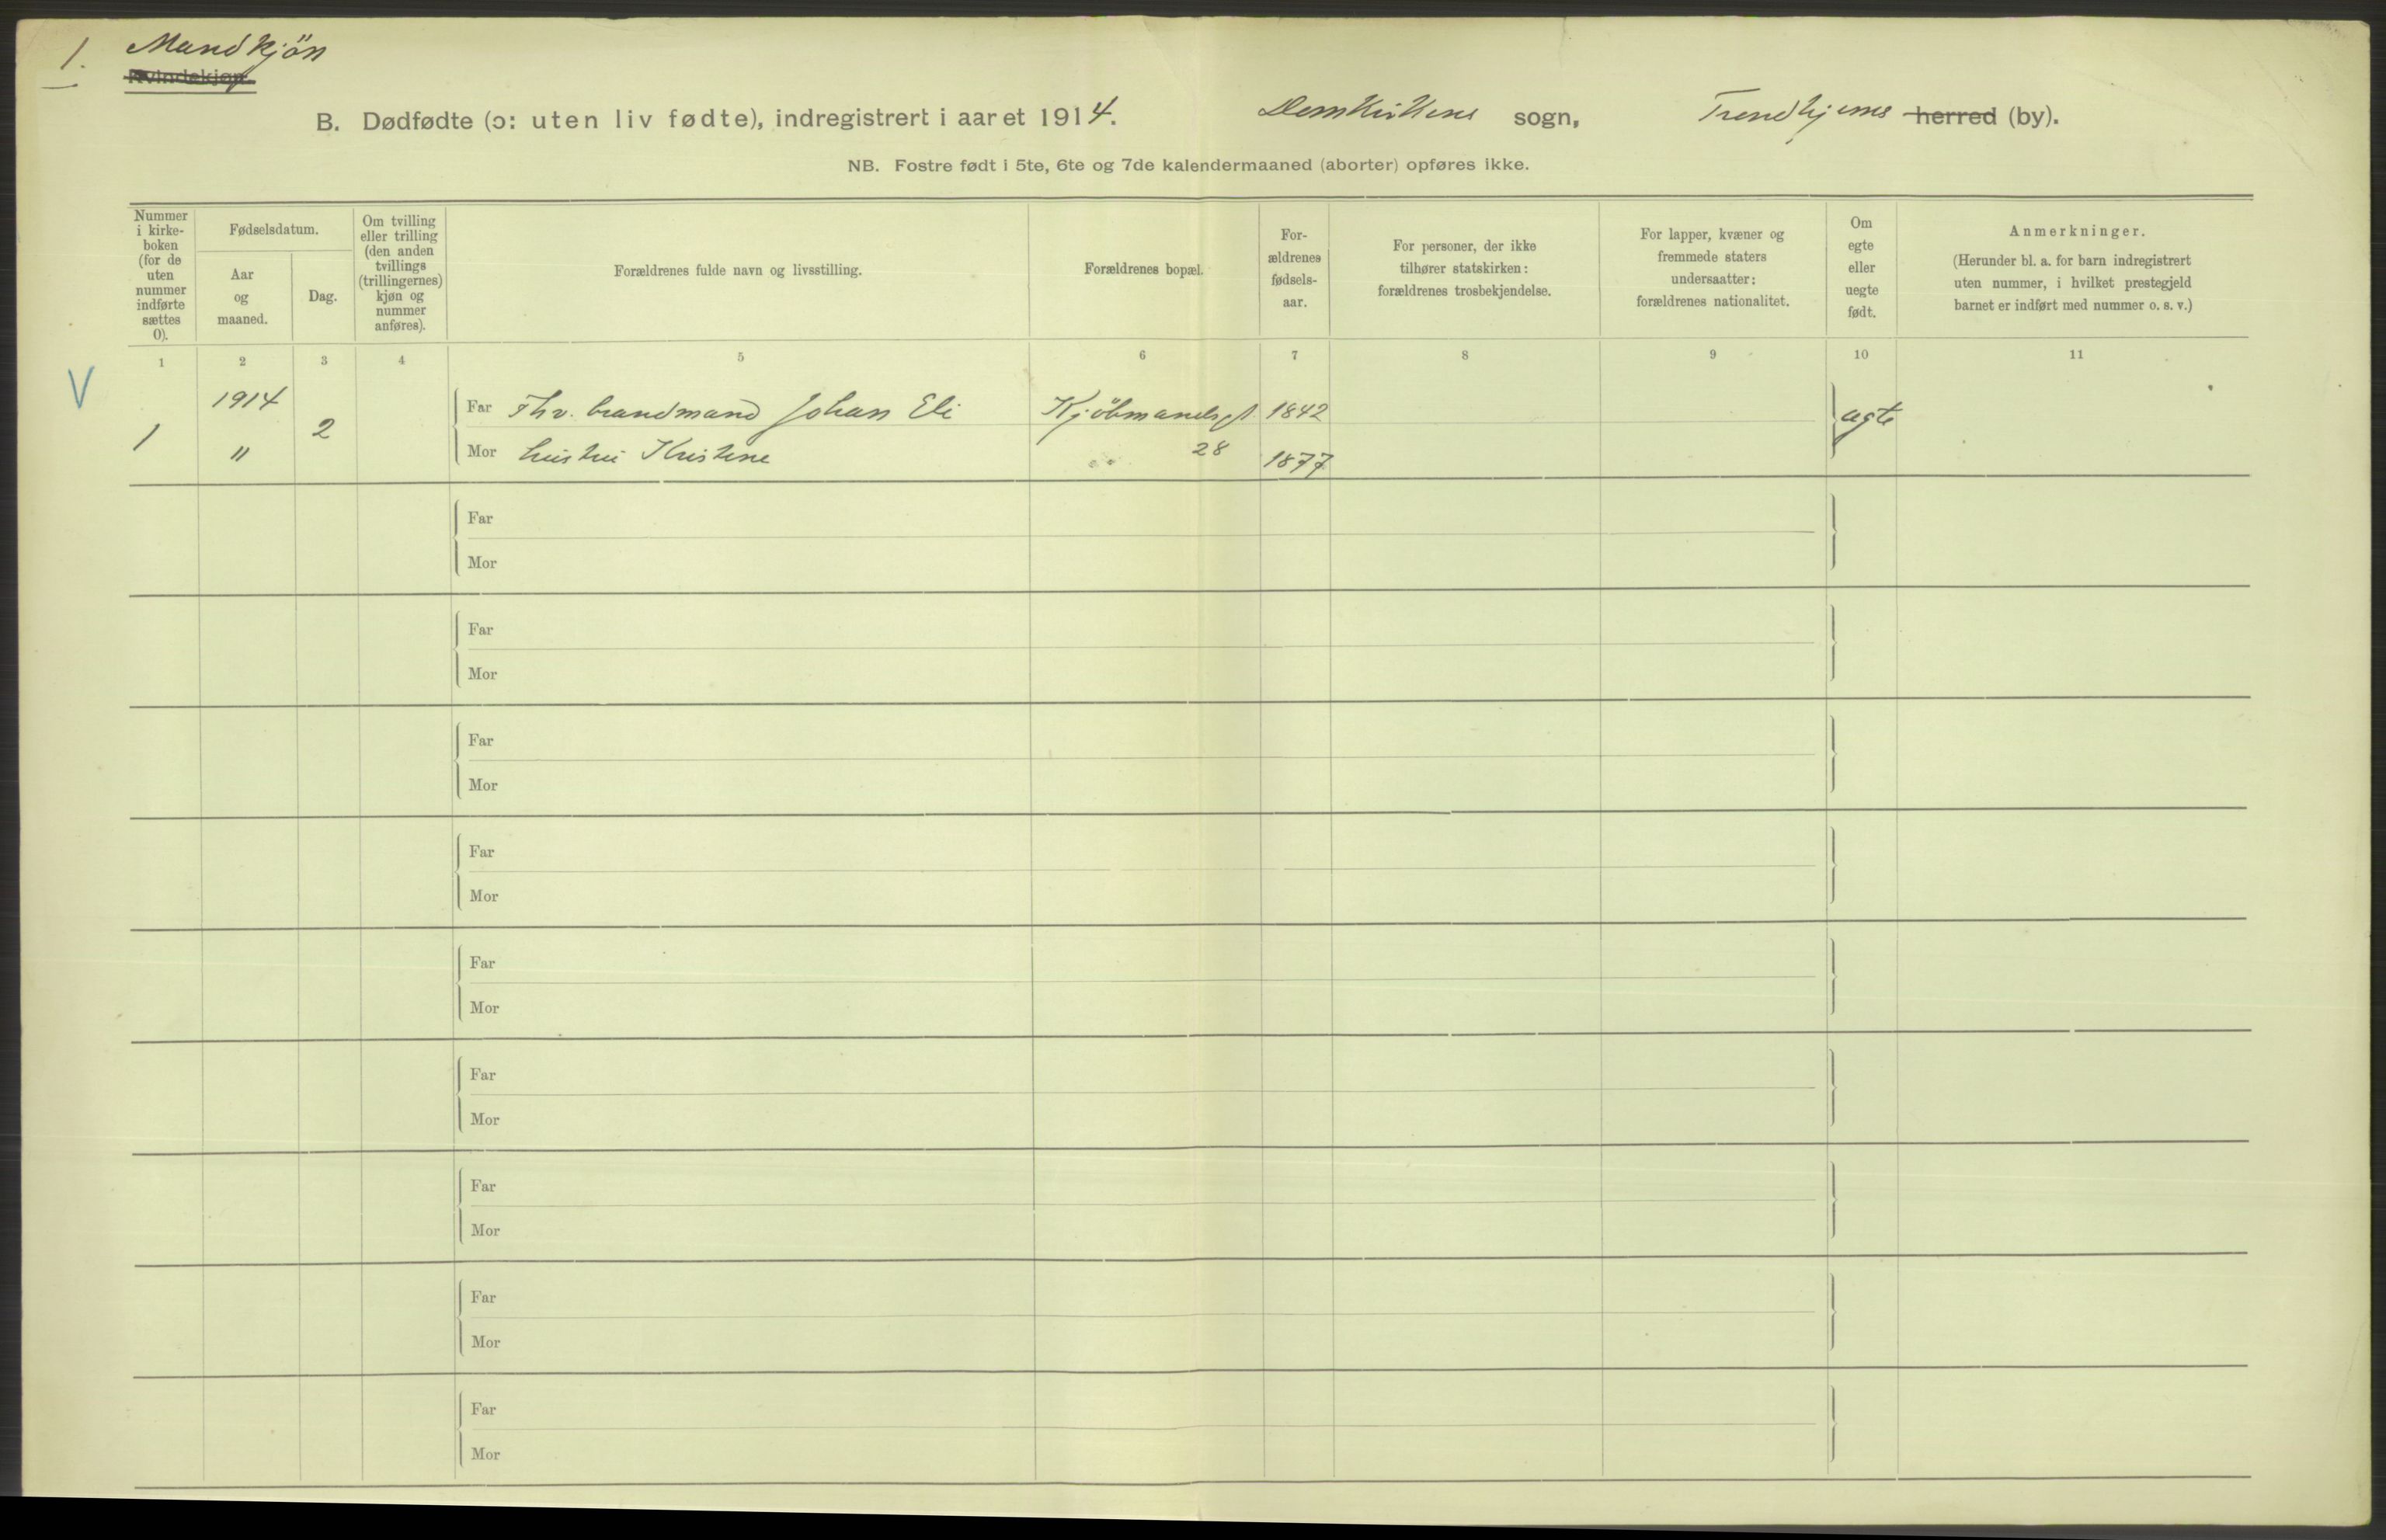 1. Mandkjön
Kvindekjøn.
B. Dødfødte (ɔ: uten liv fødte), indregistrert i aaret 1914. Domkirkens sogn, Trondhjems herred (by).
NB. Fostre født i 5te, 6te og 7de kalendermaaned (aborter) opføres ikke.
Nummer i kirke-boken (for de uten nummer indførte sættes 0).
Fødselsdatum.
Aar og maaned.
Dag.
Om tvilling eller trilling (den anden tvillings (trillingernes) kjøn og nummer anføres).
Forældrenes fulde navn og livsstilling.
Forældrenes bopæl.
For-ældrenes fødsels-aar.
For personer, der ikke tilhører statskirken: forældrenes trosbekjendelse.
For lapper, kvæner og fremmede staters undersaatter: forældrenes nationalitet.
Om egte eller uegte født.
Anmerkninger.
(Herunder bl. a. for barn indregistrert uten nummer, i hvilket prestegjeld barnet er indført med nummer o. s. v.)
1 2 3 4 5 6 7 8 9 10 11
V
1914
Far Fhv. brandmand Johan Eli Kjöbmandsgt 1842
1 " 2 ægte
Mor hustru Kristine 28 1877
Far
Mor
Far
Mor
Far
Mor
Far
Mor
Far
Mor
Far
Mor
Far
Mor
Far
Mor
Far
Mor